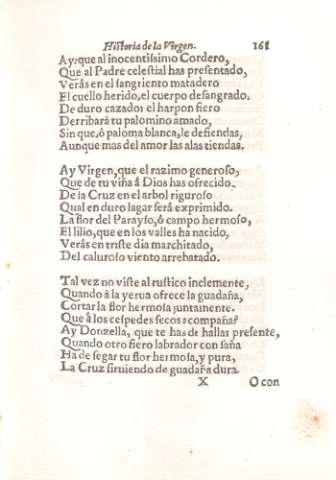 Historia de la Virgen. 161
Ay, que al inocentissimo Cordero,
Que al Padre celestial has presentado,
Verás en el sangriento matadero
El cuello herido, el cuerpo desangrado.
De duro cazador el harpon fiero
Derribará tu palomino amado,
Sin que, ó paloma blanca, le defiendas,
Aunque mas del amor las alas tiendas.
Ay Virgen, que el razimo generoso,
Que de tu viña à Dios has ofrecido.
De la Cruz en el arbol riguroso
Qual en duro lagar será exprimido.
La flor del Parayso, ò campo hermoso,
El lilio, que en los valles ha nacido,
Verás en triste dia marchitado,
Del caluroso viento arrebatado.
Tal vez no viste al rustico inclemente,
Quando à la yerua ofrece la guadaña,
Cortar la flor hermosa juntamente.
Que à los cespedes secos acompaña?
Ay Donzella, que te has de hallar presente,
Quando otro fiero labrador con saña
Ha de segar tu flor hermosa, y pura,
La Cruz siruiendo de guadaña dura.
X O con